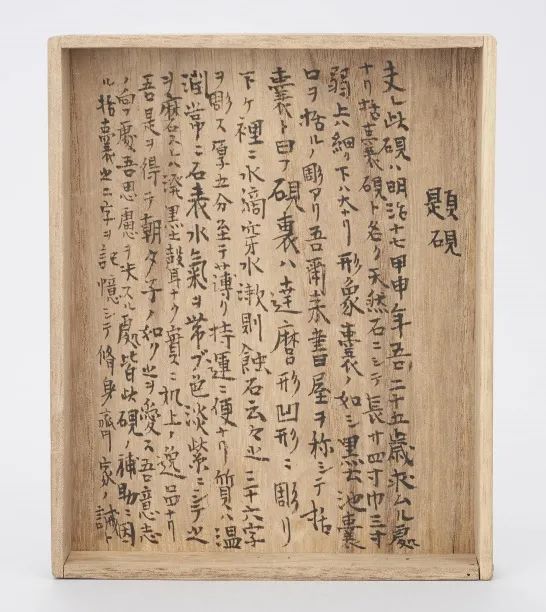 題硯
夫レ此硯ハ明治十七甲申年吾二十五歳求ムル處
ナリ括嚢硯ト名ク天然石ニシテ長サ四寸巾三寸
弱上ハ細ク下ハ大ナリ形象嚢ノ如シ墨池嚢
口ヲ括ルノ彫アリ吾爾来書屋ヲ称シテ括
嚢ト曰フ硯裏ハ達磨形凹形ニ彫リ
下ケ裡ニ水滴穿水漱則蝕石云々ノ三十六字
ヲ彫ス厚五分至テ薄ク持運ニ便ナリ質ハ温
潤常ニ石表水氣ヲ帯ブ色淡紫ニシテ之
ヲ磨スレハ發墨土殻耳ナク實ニ机上ノ逸品ナリ
吾是ヲ得テ朝夕子ノ如ク之ヲ愛ス吾意志
ノ向フ處吾思慮ヲ決スル處皆此硯ノ補助ニ因
ル括嚢ノ二字ヲ記憶シテ脩身齊家ノ誡ト